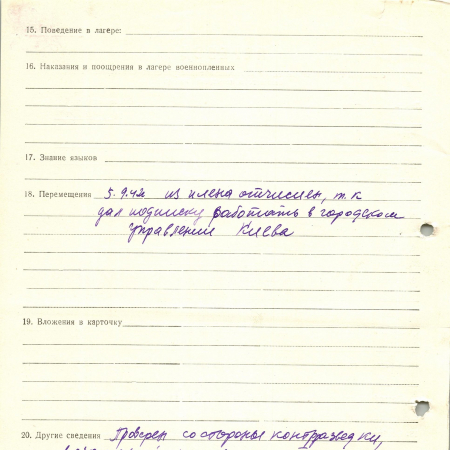 15. Поведение в лагере:
16. Наказания и поощрения в лагере военнопленных
17. Знание языков
18. Перемещения 5.9.42 из плена отчислен, т.к
дал подписку работать в городском
управлении Киева
19. Вложения в карточку
20. Другие сведения Проверен со стороны контрразведки,